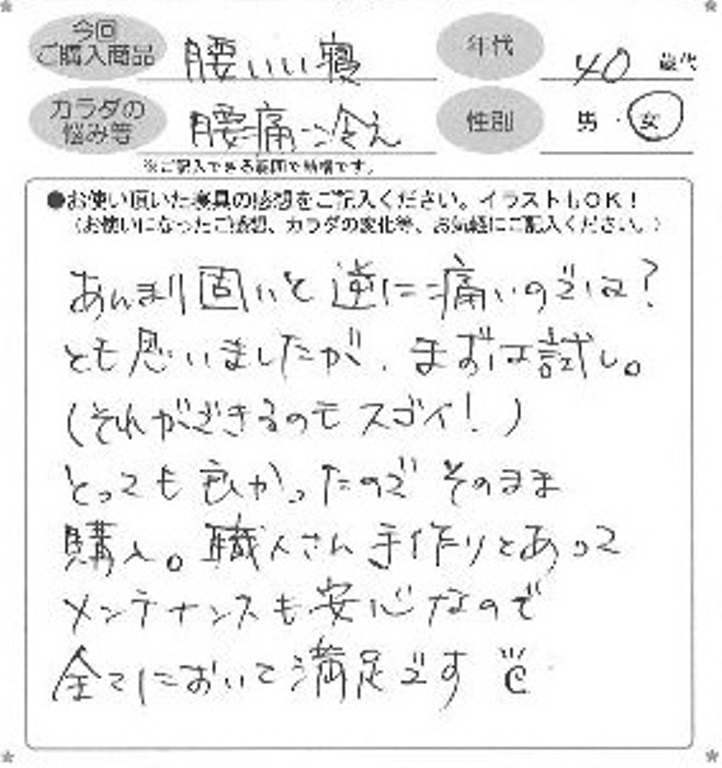 今回
ご購入商品
腰いい寝
年代
40歳代
カラダの
悩み等
腰痛・冷え
性別
男・女
※ご記入できる範囲で結構です。
●お使い頂いた寝具の感想をご記入ください。イラストもOK！
（お使いになったご感想、カラダの変化等、お気軽にご記入ください。）
あんまり固いと逆に痛いのでは？
とも思いましたが、まずは試し。
（それができるのもスゴイ！）
とっても良かったのでそのまま
購入。職人さん手作りとあって
メンテナンスも安心なので
全てにおいて満足です